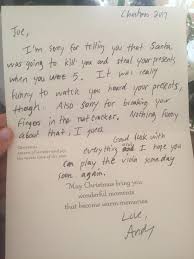 Christmas 2017
Joe,
I'm sorry for telling you that Santa
was going to kill you and steal your presents
when you were 5. It was really
funny to watch you hoard your presents,
though. Also sorry for breaking your
fingers in the nutcracker. Nothing funny
about that, I guess.
Good luck with
everything and I hope you
can play the viola someday
soon again.
May Christmas bring you
wonderful moments
that become warm memories.
Love,
Andy